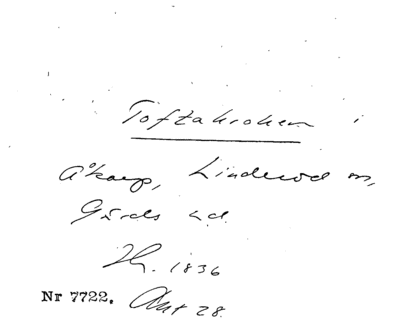 Toftakroken i
Åkarp, Linderöd sn,
Gärds hd.
Th. 1836
Nr 7722. Akt 28.